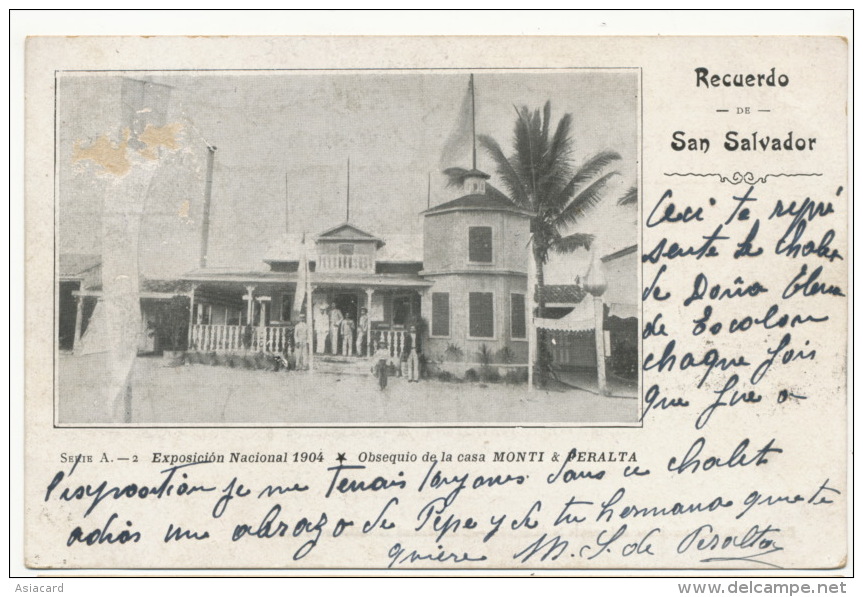 Recuerdo
— DE —
San Salvador
Ceci te repré
sente le chalet
de Doña Elena
de Escolan
chaque fois
que fue a
SERIE A. — 2 Exposición Nacional 1904 ★ Obsequio de la casa MONTI & PERALTA
l'exposition je me tenais toujours dans ce chalet
adiós un abrazo de Pepe y de tu hermana que te
quiere M. S. de Peralta
Asiacard
http://www.delcampe.net